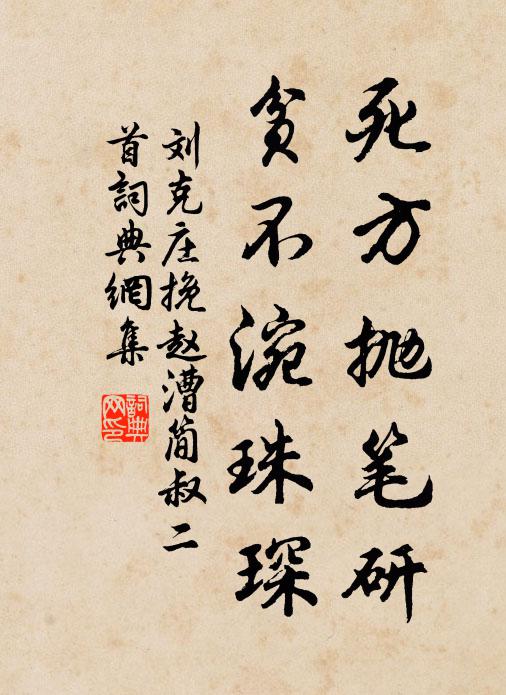 死方抛笔研
贫不涴珠琛
刘克庄挽赵漕简叔二
首詞典網集
詞典网印